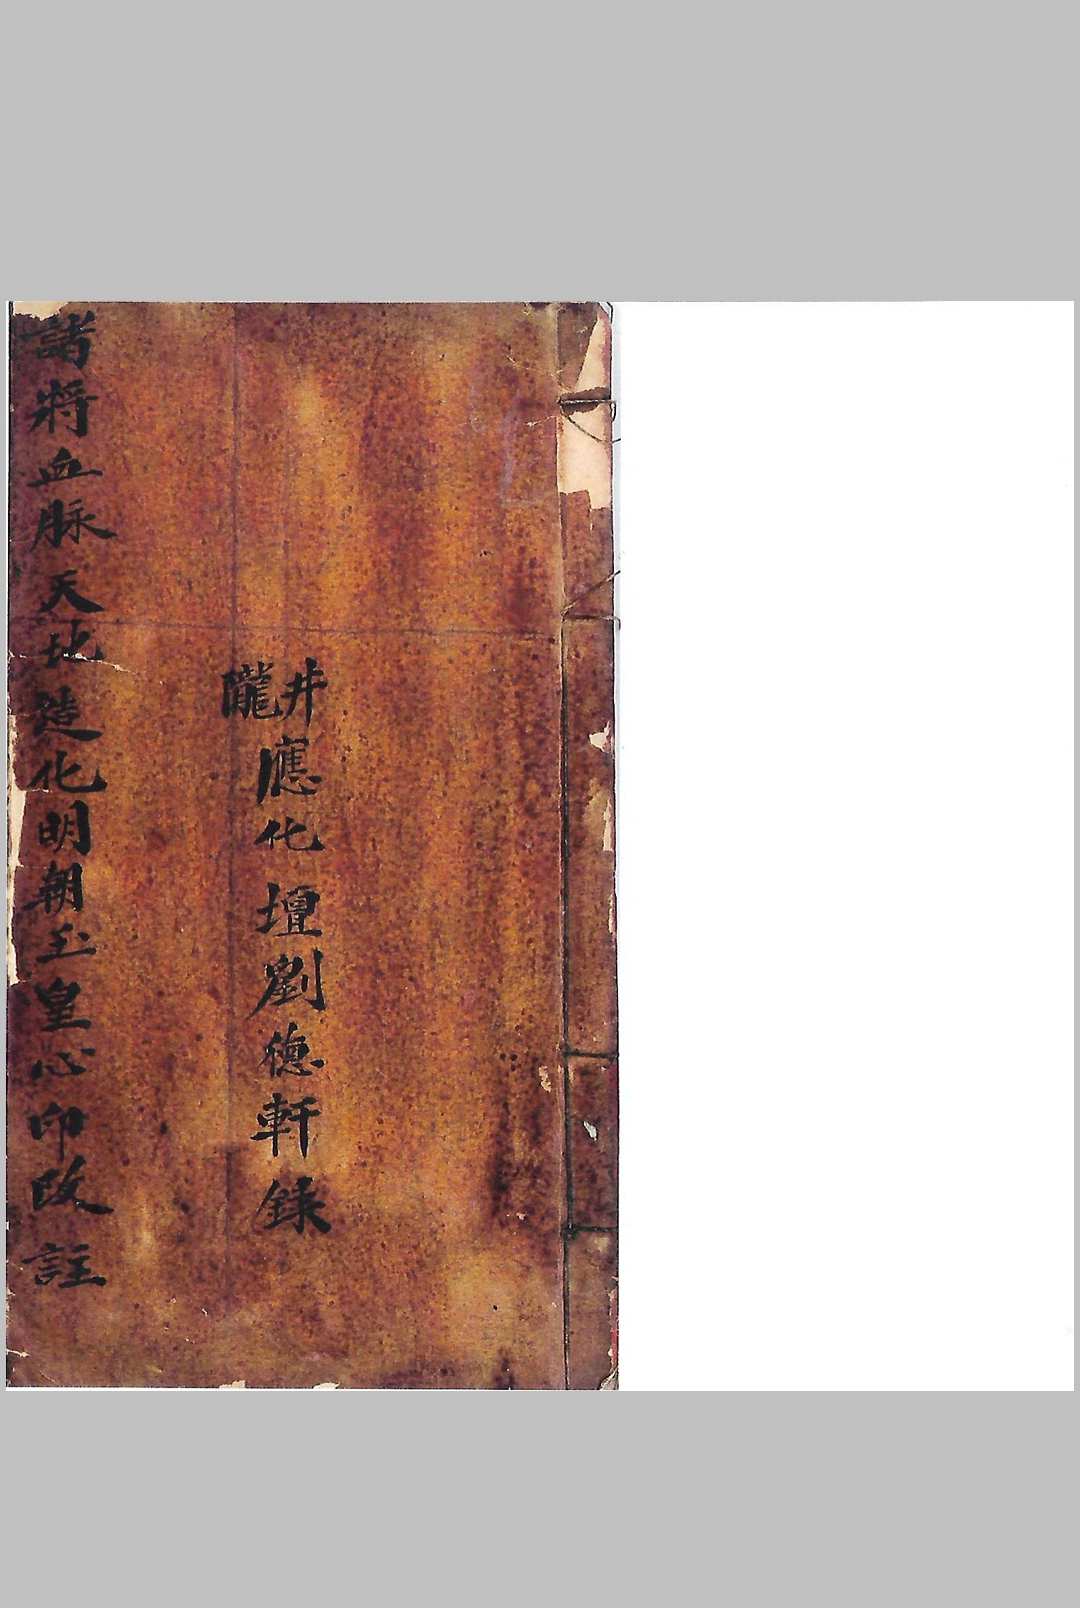 井隴應化壇劉德軒錄
諸將血脉天地造化明朝玉皇心印改註